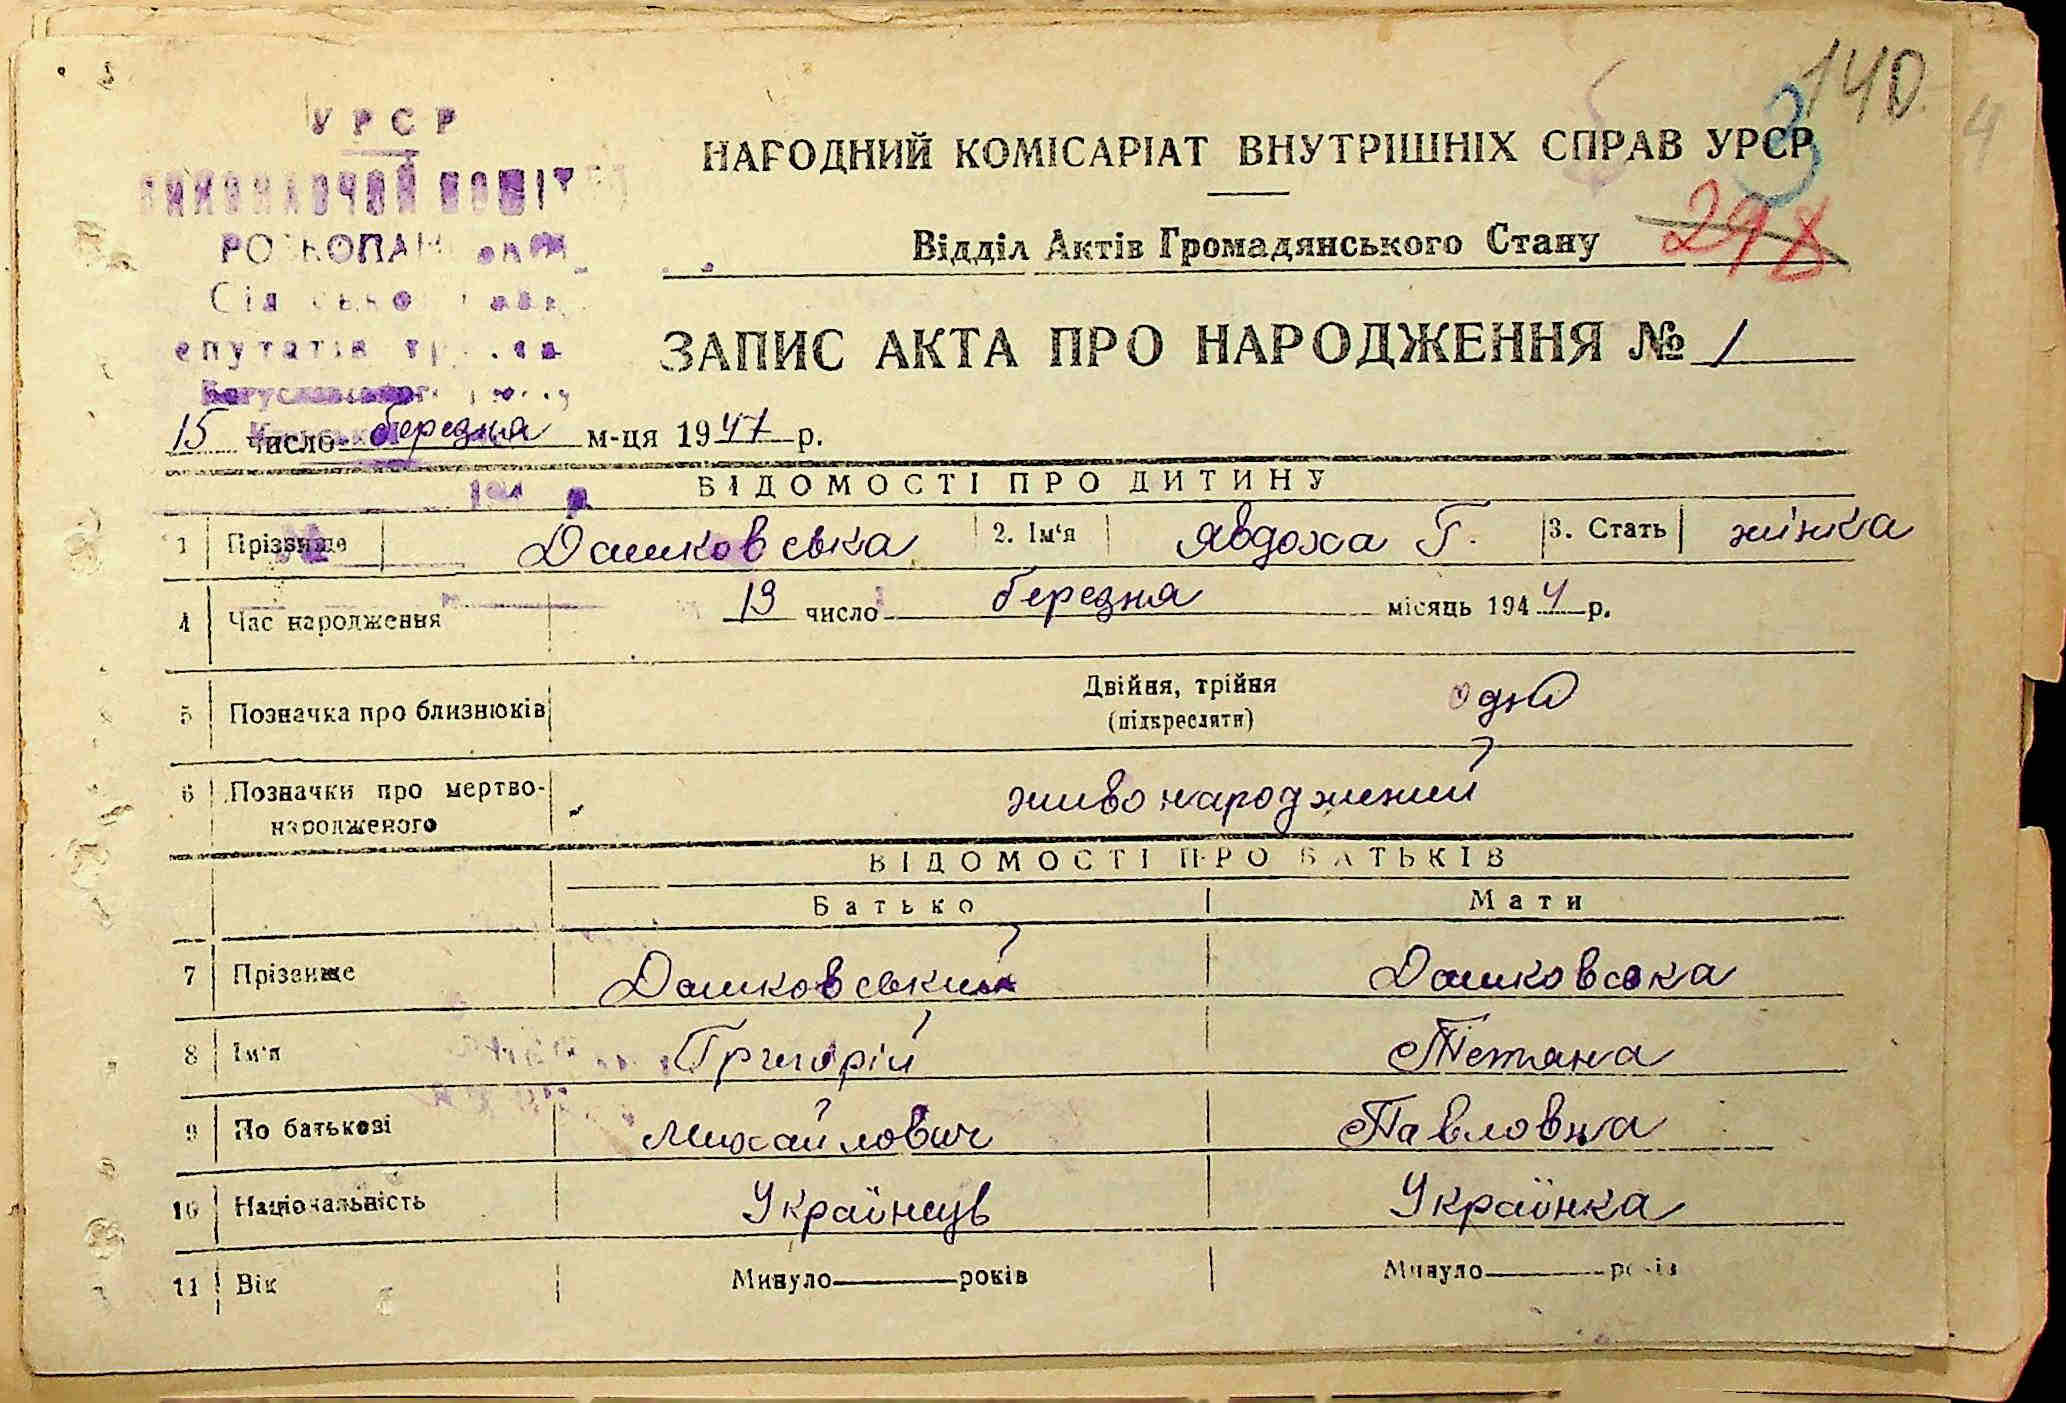 140
4
3
298
УРСР
НАРОДНИЙ КОМІСАРІАТ ВНУТРІШНІХ СПРАВ УРСР
Відділ Актів Громадянського Стану
ЗАПИС АКТА ПРО НАРОДЖЕННЯ № 1
15 число березня м-ця 1947 р.
ВІДОМОСТІ ПРО ДИТИНУ
1 Прізвище Дашковська 2. Ім'я Явдоха Г. 3. Стать жінка
4 Час народження 19 число березня місяць 1944 р.
5 Позначка про близнюків Двійня, трійня одна
(підкреслити)
6 Позначки про мертво- живо народжений
народженого
ВІДОМОСТІ ПРО БАТЬКІВ
Батько Мати
7 Прізвище Дашковський Дашковська
8 Ім'я Григорій Тетяна
9 По батькові Михайлович Павловна
10 Національність Українець Українка
11 Вік Минуло років Минуло років